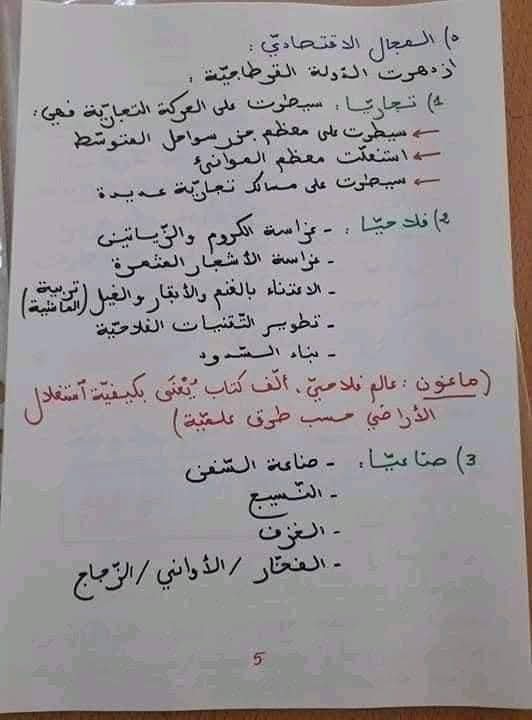 ه) المجال الاقتصاديّ :
ازدهرت الدّولة القرطاجيّة :
1) تجاريّا : سيطرت على الحركة التجاريّة فهي :
← سيطرت على معظم جزر سواحل المتوسّط
← استغلّت معظم الموانئ
← سيطرت على مسالك تجاريّة عديدة
2) فلاحيّا : - غراسة الكروم والزّياتين
- غراسة الأشجار المثمرة
- الاعتناء بالغنم والأبقار والخيل (تربية الماشية)
- تطوير التّقنيات الفلاحيّة
- بناء السّدود
(ماغون : عالم فلاحيّ، ألّف كتاب يُعْنَى بكيفيّة استغلال
الأراضي حسب طرق علميّة)
3) صناعيّا : - صناعة السّفن
- النّسيج
- الخزف
- الفخّار / الأواني / الزّجاج
5